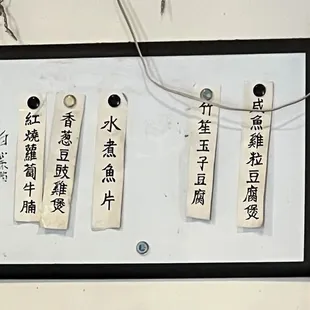 咸魚雞粒豆腐煲
竹笙玉子豆腐
水煮魚片
香葱豆豉雞煲
紅燒蘿蔔牛腩